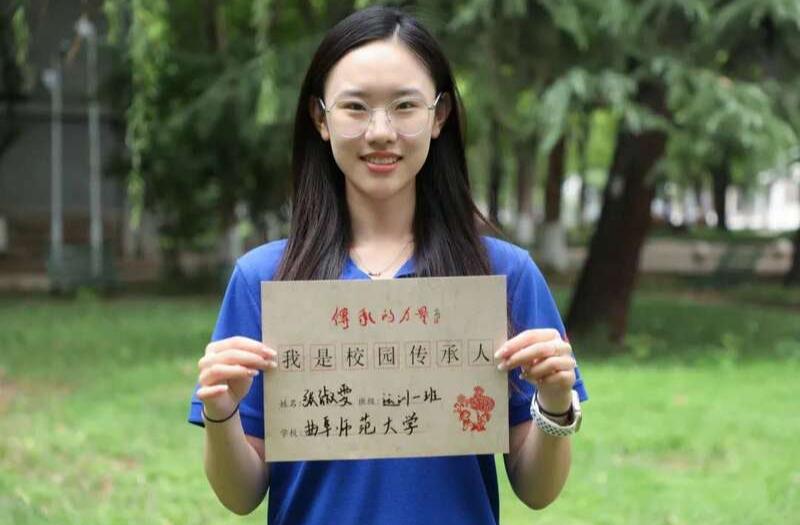 傳承的力量
我是校园传承人
姓名:张淑雯 班级:运训一班
学校:曲阜师范大学